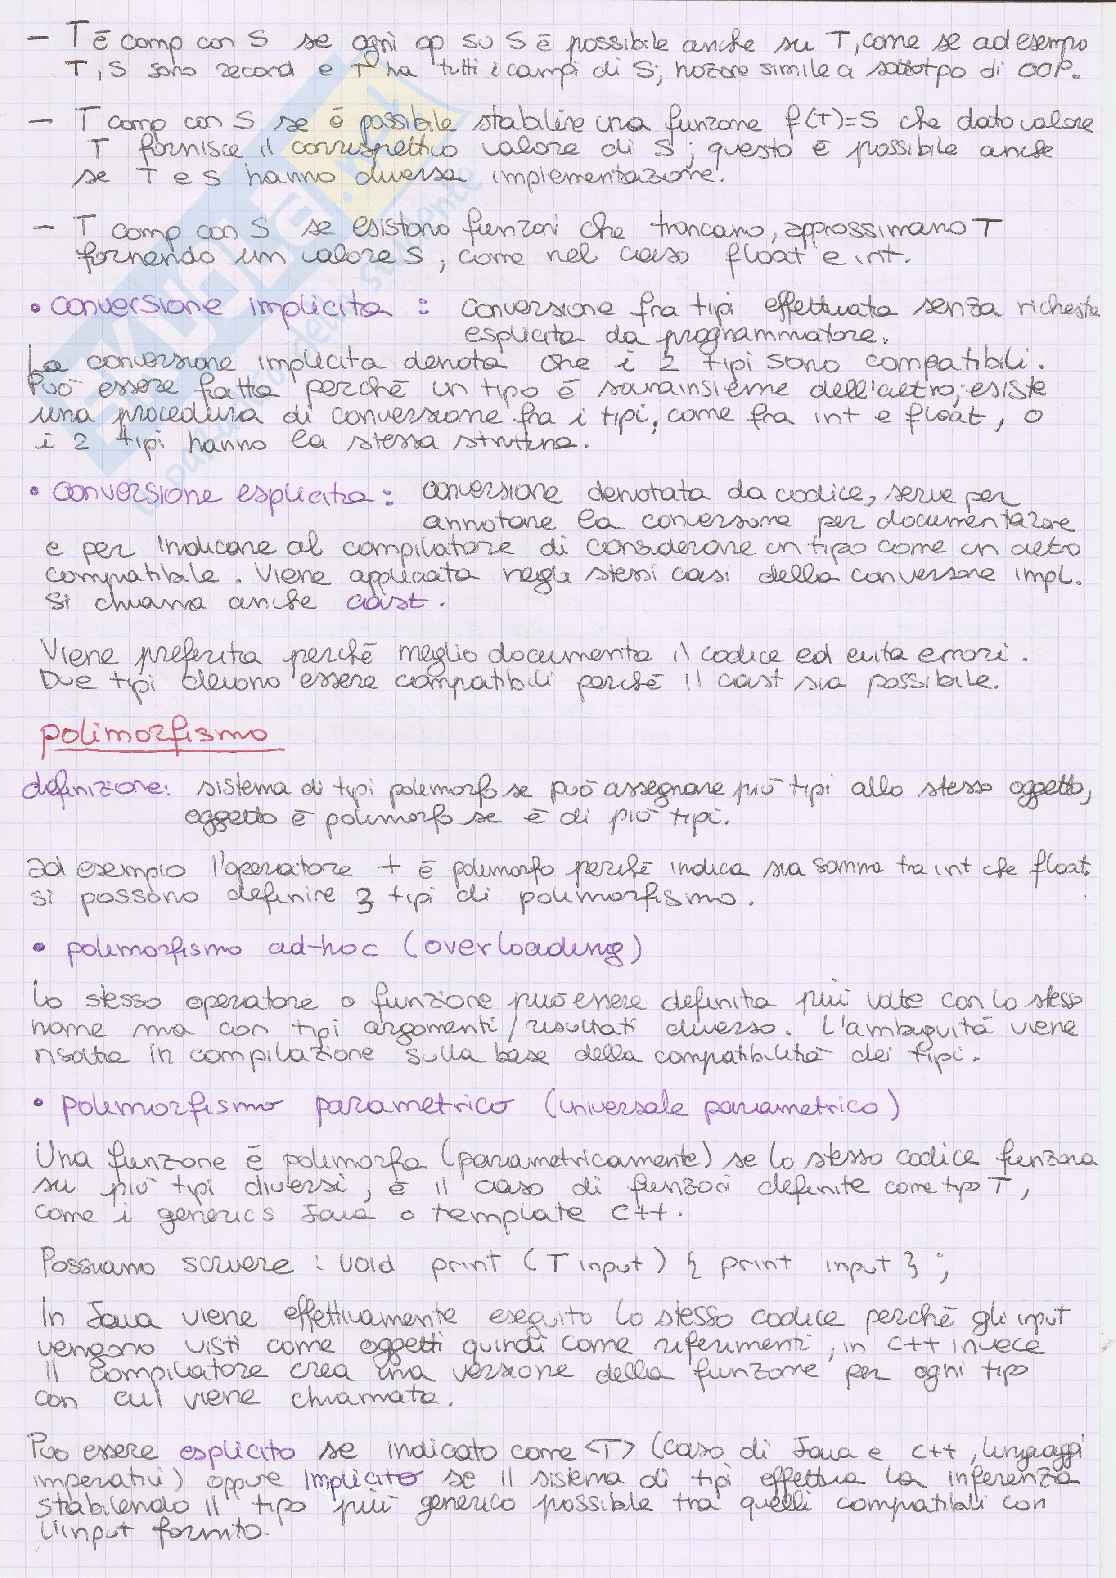 - T è comp con S se ogni op su S è possibile anche su T, come se ad esempo
T, S sono record e T ha tutti i campi di S; nozone simile a sottotpo di OOP.
- T comp con S se è possibile stabilire una funzone f(T)=S che dato valore
T fornisce il corrispettico valore di S; questo è possibile anche
se T e S hanno diversa implementazione.
- T comp con S se esistono funzoni che troncano, approssimano T
fornendo un valore S, come nel caso float e int.
• conversione implicita : conversione fra tipi effettuata senza richesta
esplicita da programmatore.
La conversione implicita denota che i 2 tipi sono compatibili.
Può essere fatta perchè un tipo è sovrainsieme dell'altro, esiste
una procedura di conversione fra i tipi, come fra int e float, o
i 2 tipi hanno la stessa struttura.
• conversione esplicita : conversione denotata da codice, serve per
annotare la conversone per documentazone
e per indicare al compilatore di considerare un tipo come un altro
compatibile. Viene applicata negli stessi casi della conversone impl.
Si chiama anche cast.
Viene preferita perchè meglio documenta il codice ed evita errori.
Due tipi devono essere compatibili perchè il cast sia possibile.
polimorfismo
definizione: sistema di tipi polimorfo se può assegnare più tipi allo stesso oggetto,
oggetto è polimorfo se è di più tipi.
ad esempio l'operatore + è polimorfo perchè indica sia somma tra int che float.
si possono definire 3 tipi di polimorfismo.
• polimorfismo ad-hoc (overloading)
Lo stesso operatore o funzione può essere definita più volte con lo stesso
nome ma con tipi argomenti/risultati diverso. L'ambiguità viene
risolta in compilazione sulla base della compatibilità dei tipi.
• polimorfismo parametrico (universale parametrico)
Una funzone è polimorfa (parametricamente) se lo stesso codice funzona
su più tipi diversi, è il caso di funzoni definite come tipo T,
come i generics Java o template C++.
Possiamo scrivere : void print (T input) { print input } ;
In Java viene effettivamente eseguito lo stesso codice perchè gli input
vengono visti come oggetti quindi come riferimenti, in C++ invece
il compilatore crea una versione della funzone per ogni tipo
con cui viene chiamata.
Può essere esplicito se indicato come <T> (caso di Java e C++, linguaggi
imperativi) oppure implicito se il sistema di tipi effettua la inferenza
stabilendo il tipo più generico possibile tra quelli compatibili con
l'input fornito.